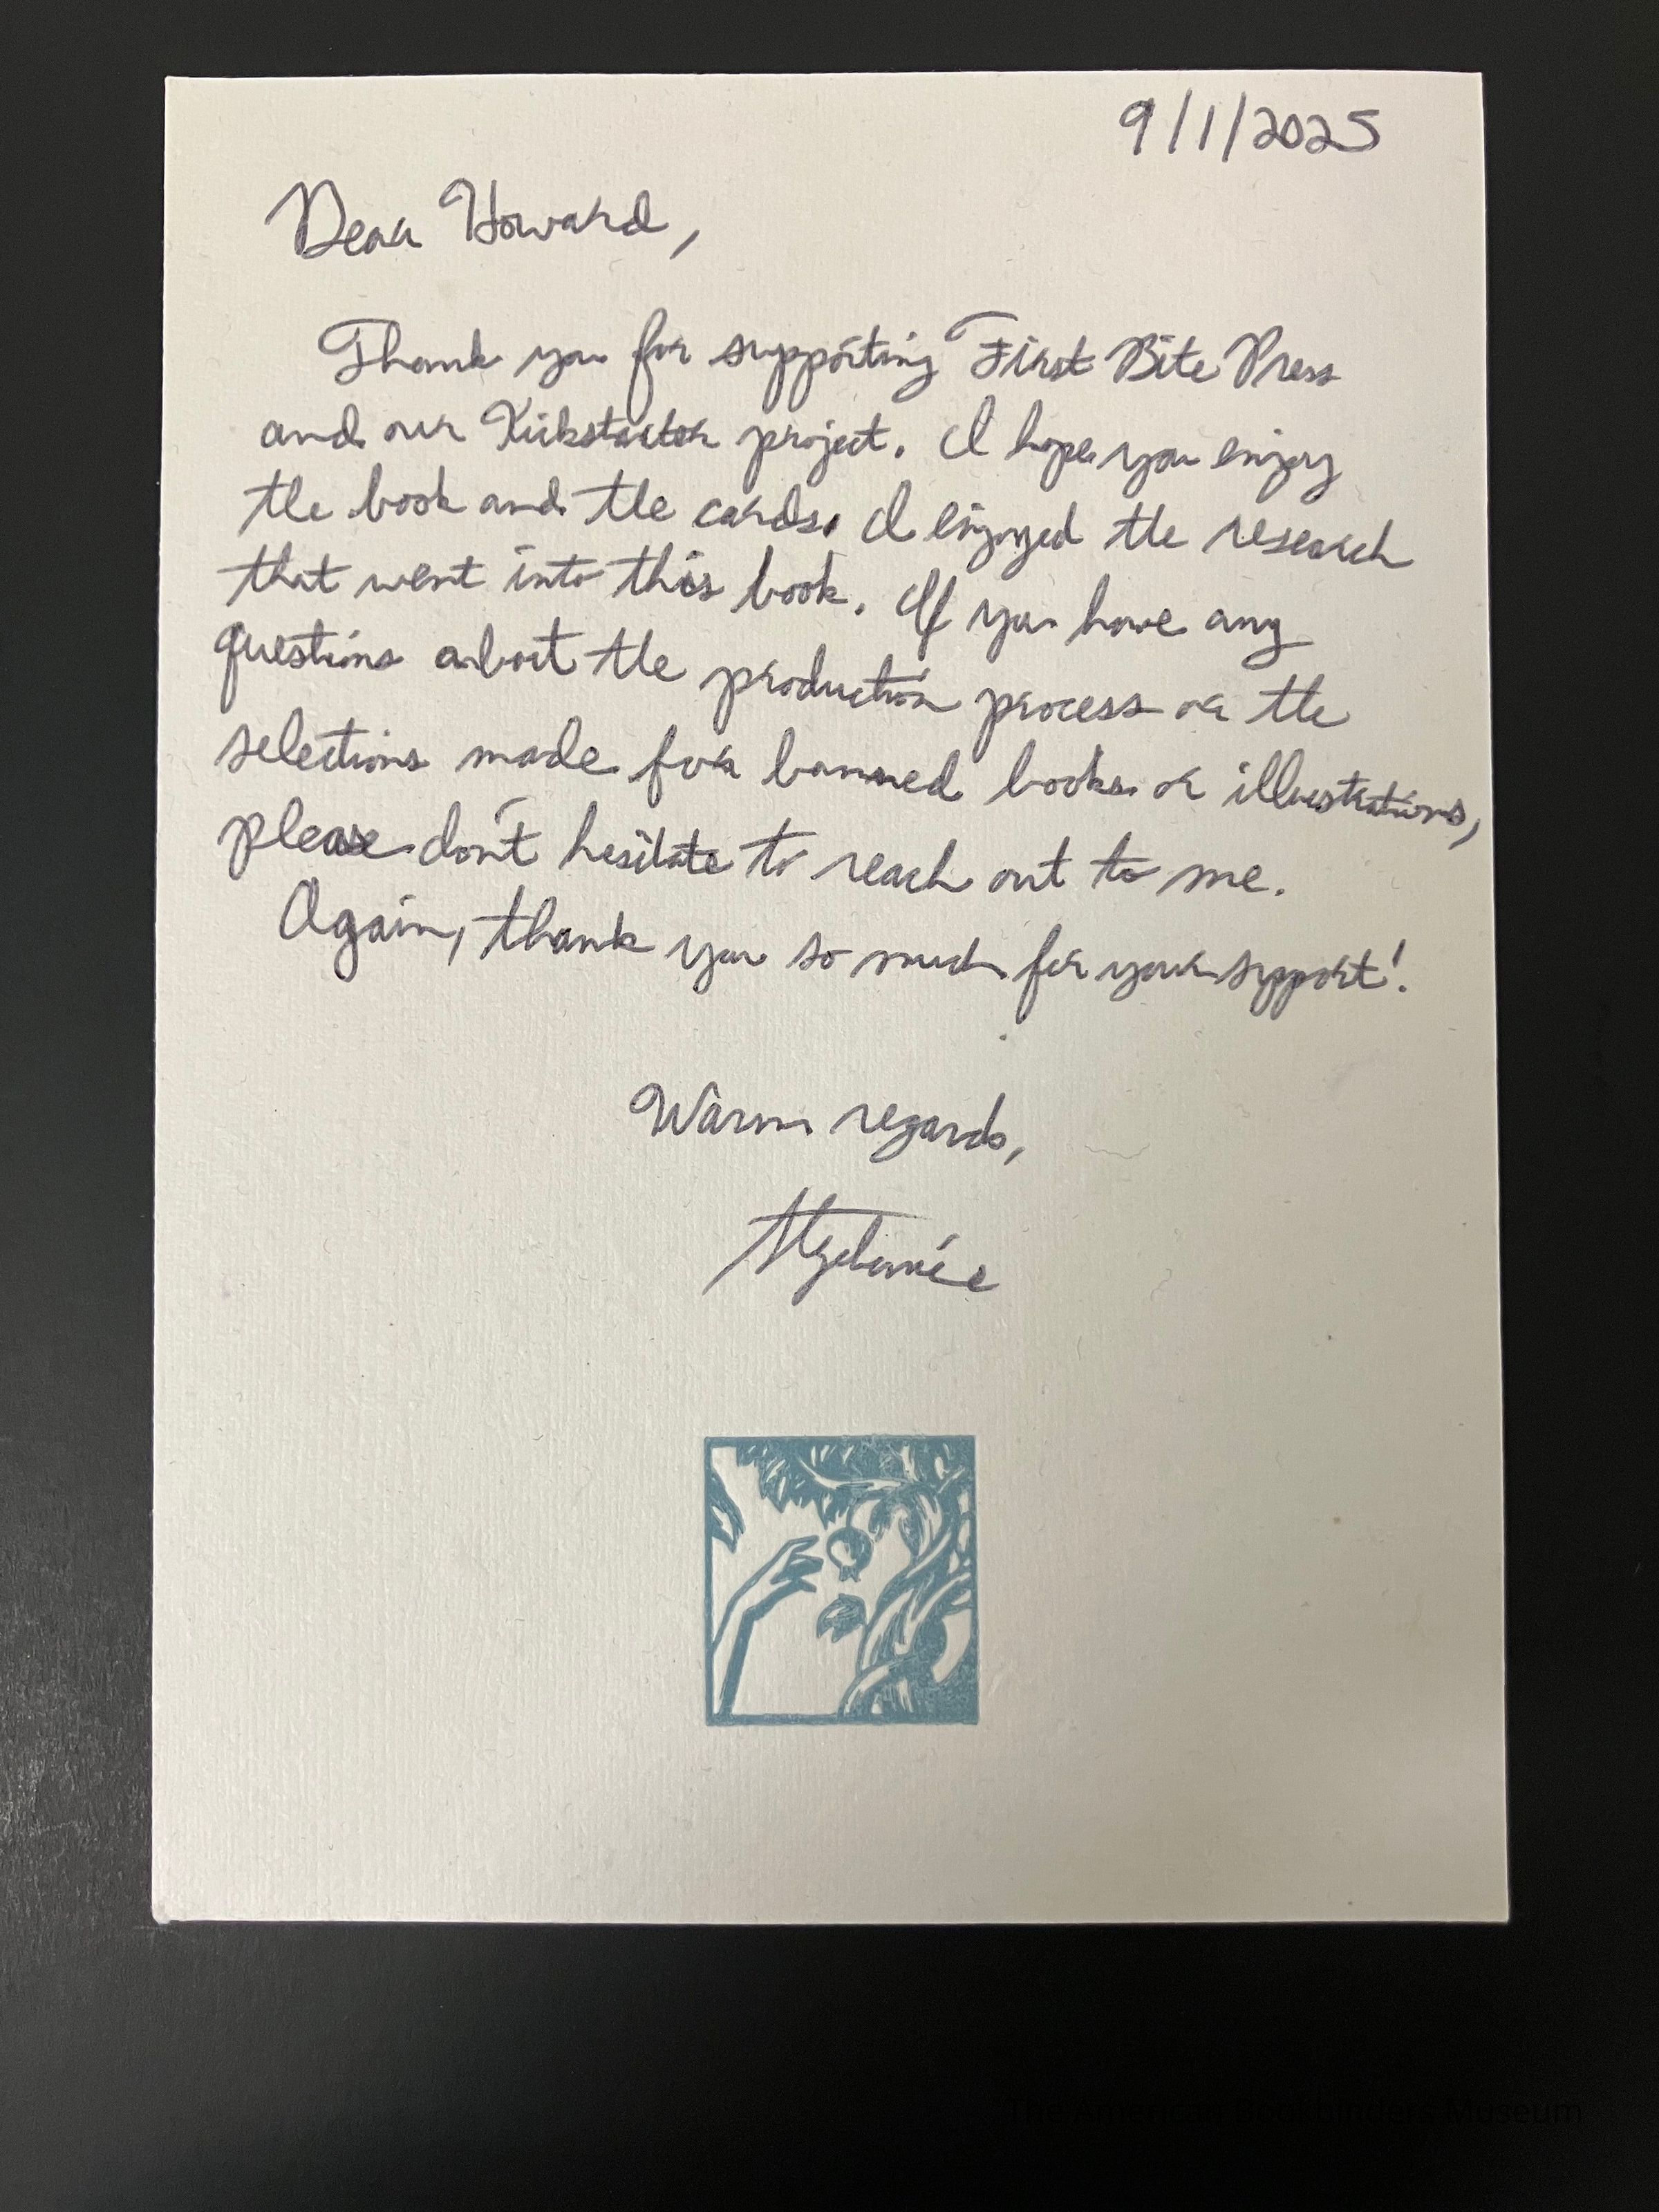 9/1/2025
Dear Howard,
Thank you for supporting First Bite Press
and our Kickstarter project. I hope you enjoy
the book and the cards. I enjoyed the research
that went into this book. If you have any
questions about the production process or the
selections made for banned books or illustrations,
please don't hesitate to reach out to me.
Again, thank you so much for your support!
Warm regards,
The American Bookbinders Museum